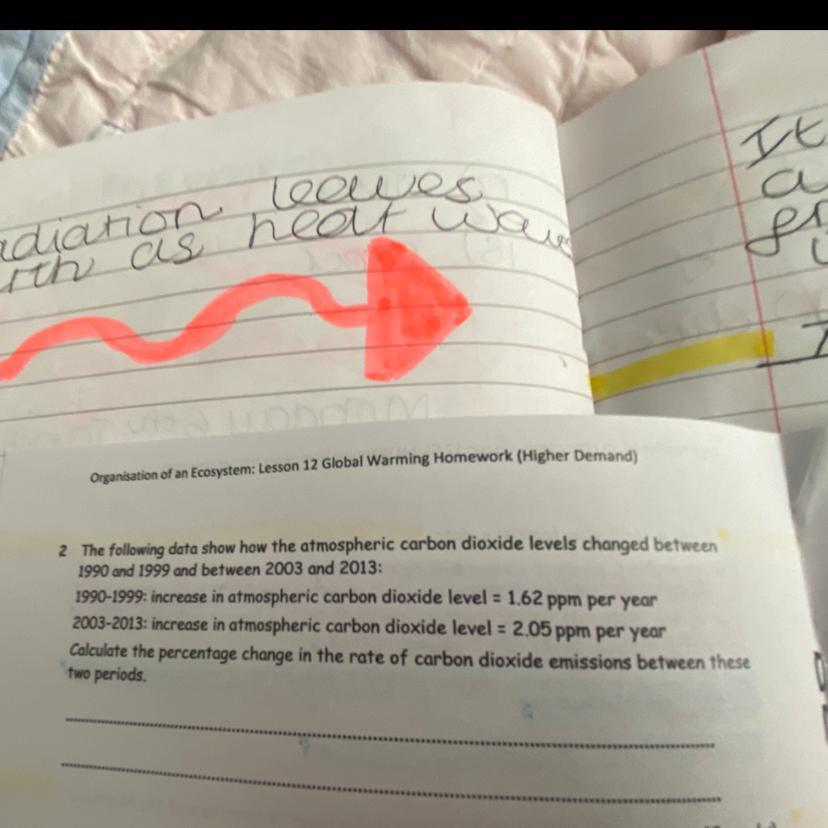 leaves
as heat
It
Organisation of an Ecosystem: Lesson 12 Global Warming Homework (Higher Demand)
2 The following data show how the atmospheric carbon dioxide levels changed between
1990 and 1999 and between 2003 and 2013:
1990-1999: increase in atmospheric carbon dioxide level = 1.62 ppm per year
2003-2013: increase in atmospheric carbon dioxide level = 2.05 ppm per year
Calculate the percentage change in the rate of carbon dioxide emissions between these
two periods.